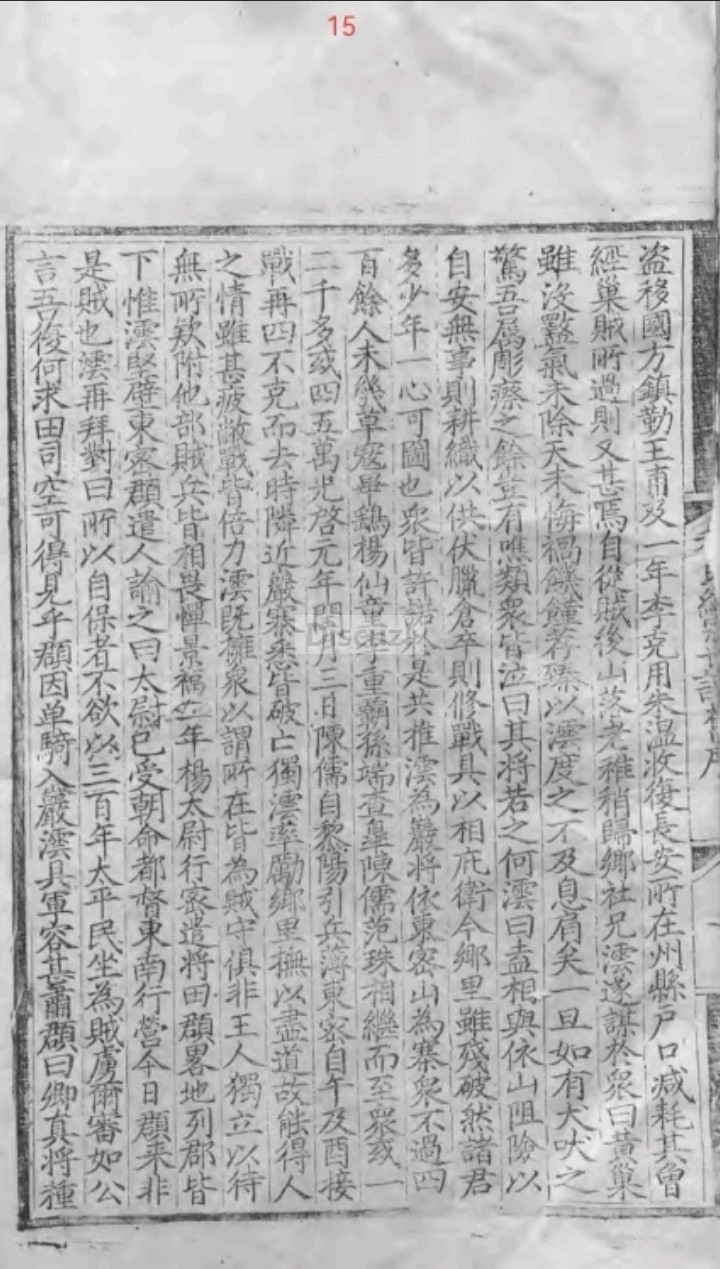 15
盗移國方鎮勤王甫及一年李克用朱温收復長安所在州縣戸口减耗其曽
經巢賊所過則又甚焉自從賊後山落老稚稍歸鄉社兄澐遂謀於衆曰黄巢
雖没盭氣未除天未悔禍饑饉荐臻以澐度之不及息肩矣一旦如有犬吠之
驚吾属彫瘵之餘豈有噍類衆皆泣曰其将若之何澐曰盍相與依山阻險以
自安無事則耕織以供伏臘倉卒則修戰具以相庇衛今鄉里雖殘破然諸君
多少年一心可圖也衆皆許諾於是共推澐為巖将依東密山為寨衆不過四
百餘人未幾草寇畢鷂楊仙童李重霸孫端查皐陳儒范珠相繼而至衆或一
二千多或四五萬光啓元年閏月三日陳儒自黎陽引兵薄東密自午及酉接
戰再四不克而去時隣近巖寨悉皆破亡獨澐率勵鄉里撫以盡道故能得人
之情雖甚疲敝戰皆倍力澐既擁衆以謂所在皆為賊守俱非王人獨立以待
無所欵附他部賊兵皆相畏憚景福二年楊太尉行密遣将田頵畧地列郡皆
下惟澐堅壁東密頵遣人諭之曰太尉已受朝命都督東南行營今日頵来非
是賊也澐再拜對曰所以自保者不欲以三百年太平民坐為賊虜爾審如公
言吾復何求田司空可得見乎頵因单騎入巖澐具軍容甚肅頵曰卿真将種
Discuz!